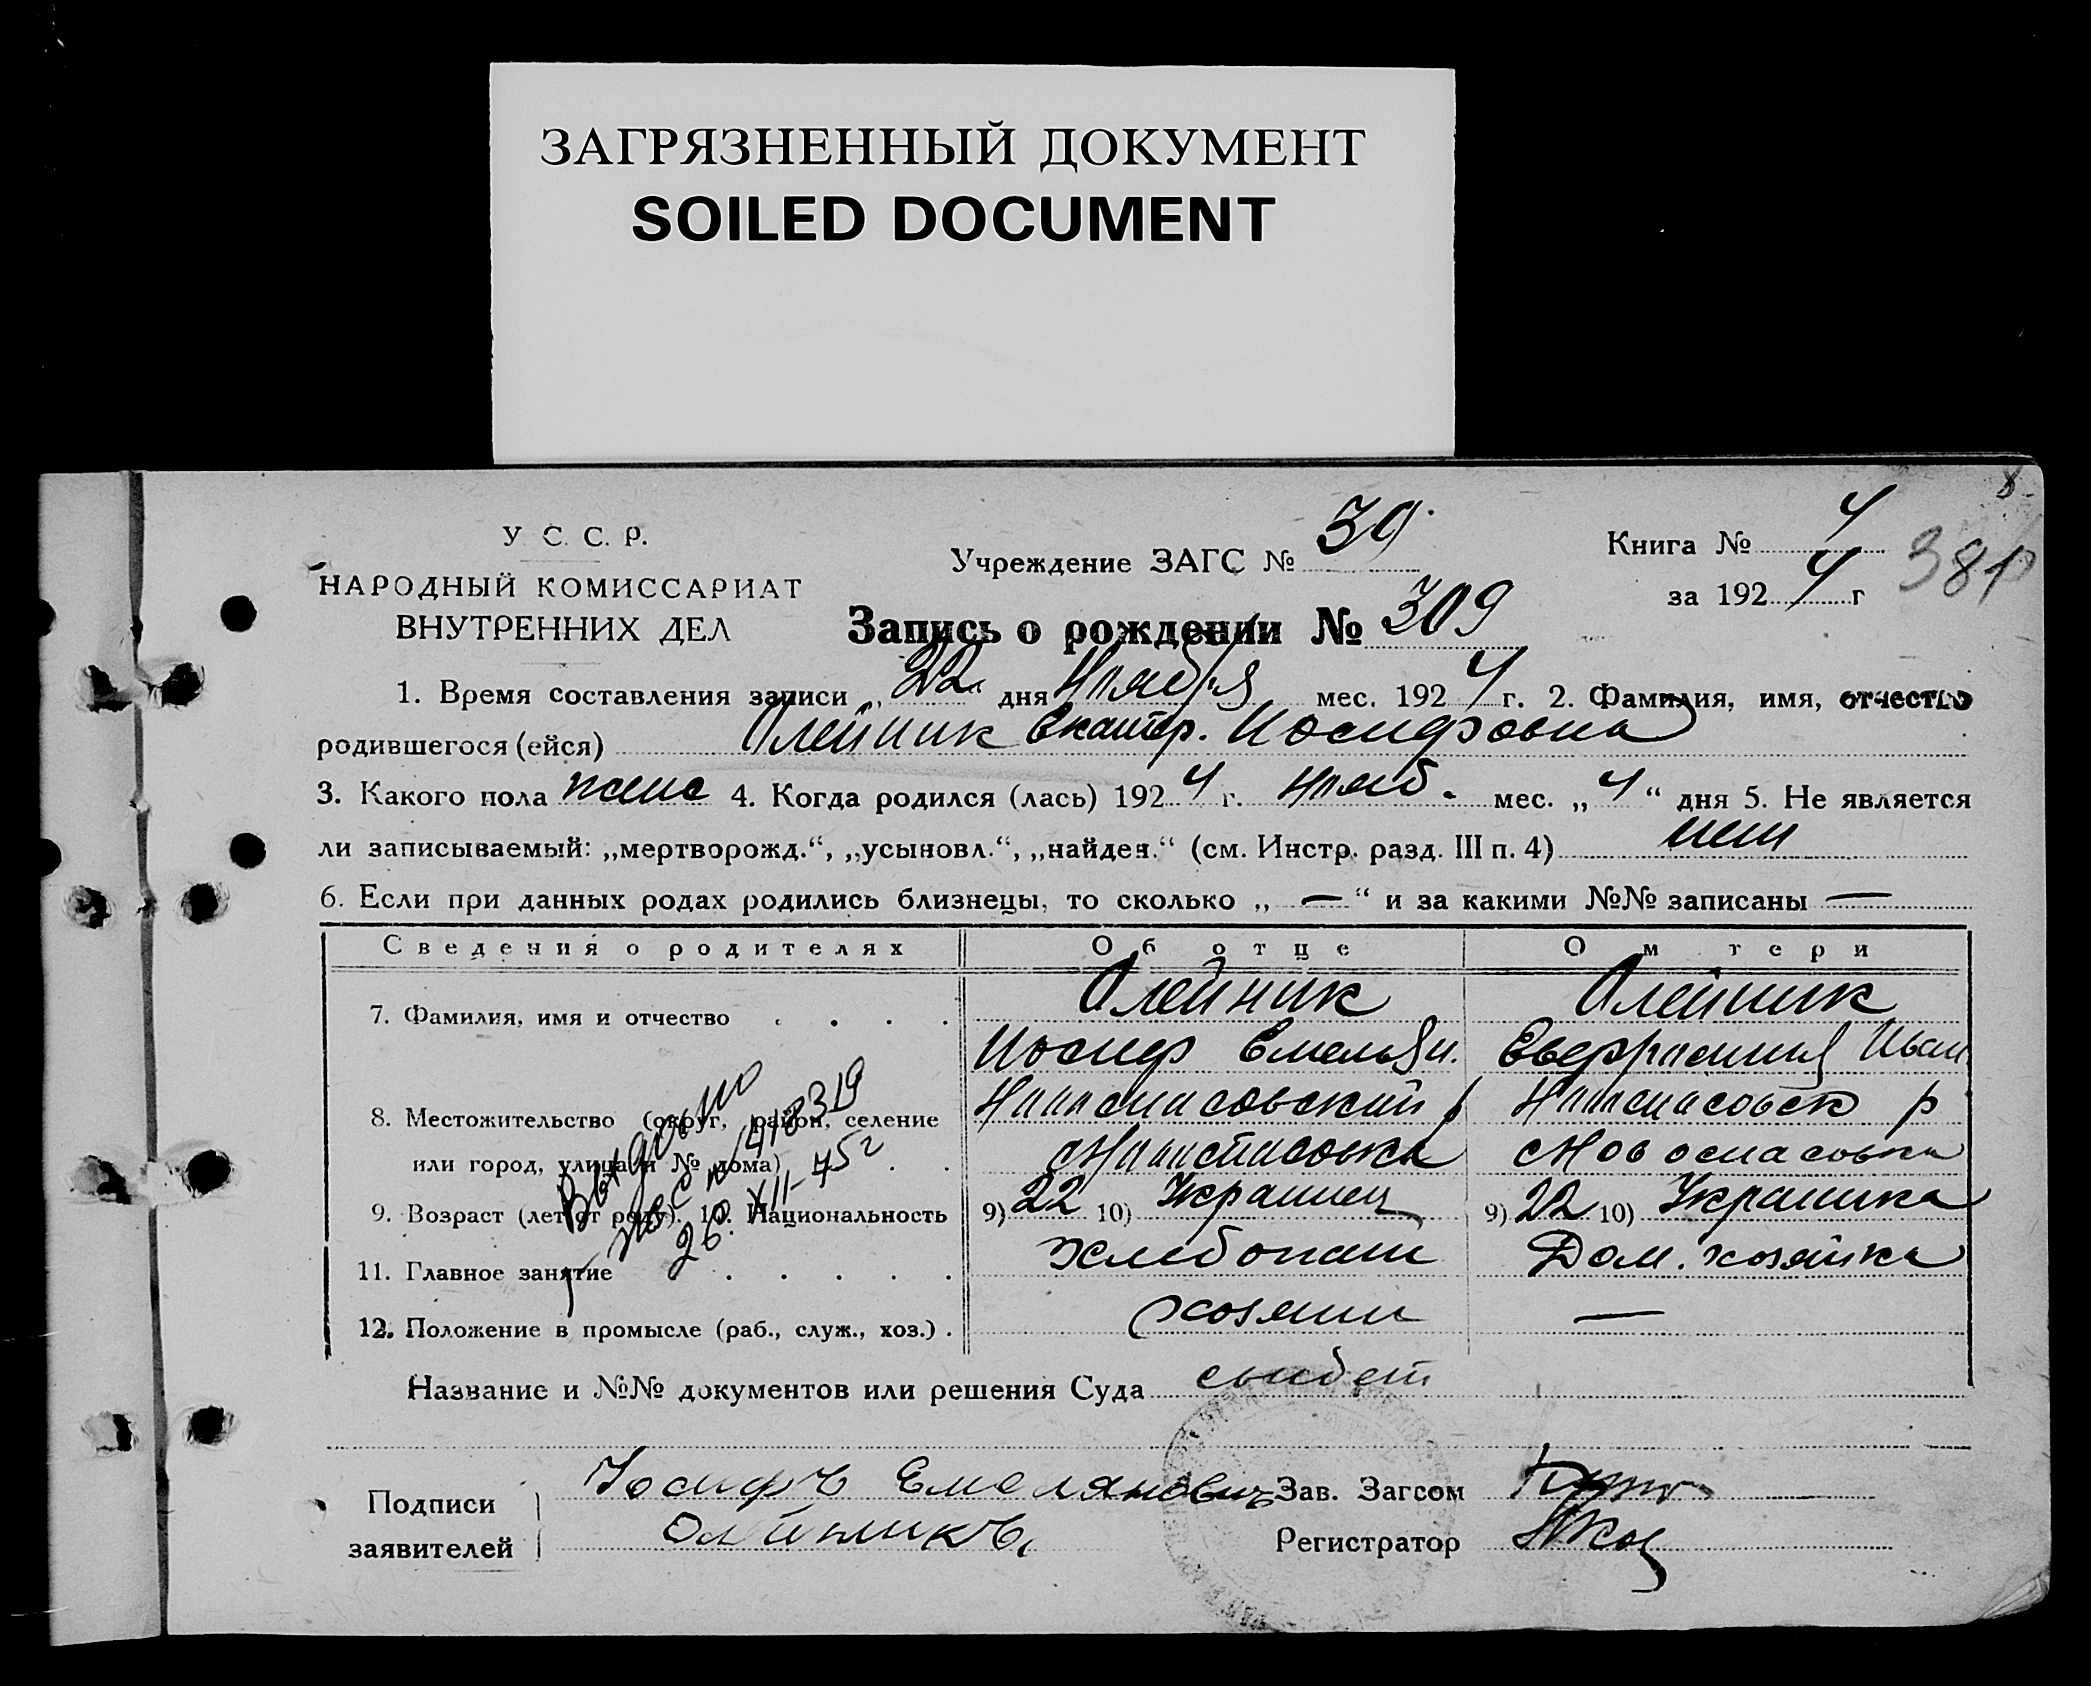 ЗАГРЯЗНЕННЫЙ ДОКУМЕНТ
SOILED DOCUMENT
8
У. С. С. Р.
НАРОДНЫЙ КОМИССАРИАТ
ВНУТРЕННИХ ДЕЛ
Учреждение ЗАГС № 39
Книга № 4
за 1924 г
381
Запись о рождении № 309
1. Время составления записи „22" дня Ноября мес. 1924 г. 2. Фамилия, имя, отчество
родившегося (ейся) Олейник Екатер. Иосифовна
3. Какого пола женс 4. Когда родился (лась) 1924 г. Нояб. мес. „4" дня 5. Не является
ли записываемый: „мертворожд.", „усыновл.", „найден." (см. Инстр. разд. III п. 4) нет
6. Если при данных родах родились близнецы, то сколько „ — " и за какими №№ записаны —
Сведения о родителях Об отце О м тери
7. Фамилия, имя и отчество Олейник Олейник
Иосиф Емельян. Евфросиния Иван
8. Местожительство (округ, район, селение Новоспасовский р Новоспасовск р
или город, улица и № дома) с Новоспасовка с Новоспасовка
9. Возраст (лет от роду). 10. Национальность 9) 22 10) Украинец 9) 22 10) Украинка
11. Главное занятие Хлебопаш Дом. хозяйка
12. Положение в промысле (раб., служ., хоз.) хозяин —
Выдано
418319
26. XII-75 г
Название и №№ документов или решения Суда
Подписи заявителей Иосифъ Емеляновичъ
Олейникъ
Зав. Загсом
Регистратор